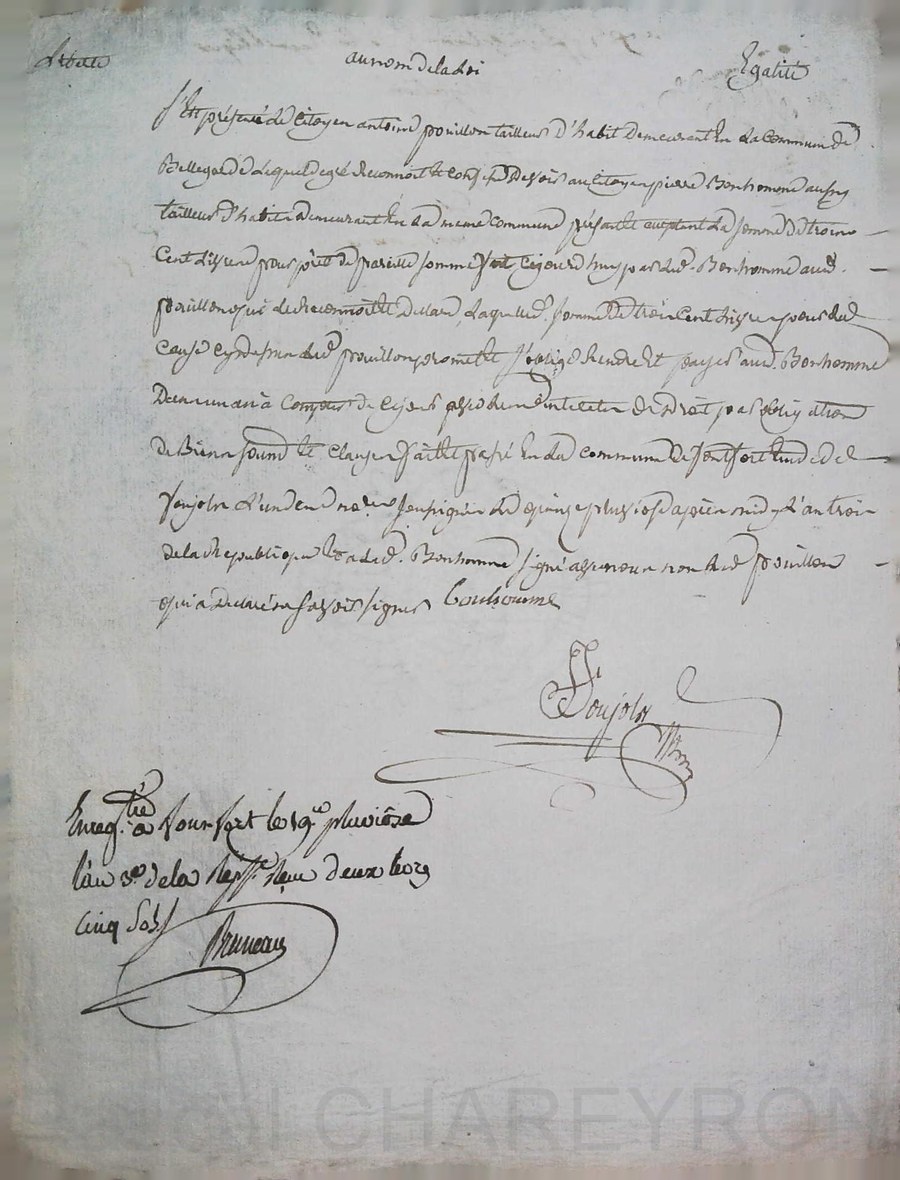 Liberté au nom de la Loi Egalité
S'Est présenté Le Citoyen antoine pouillon tailleur d'habit Demeurant En La Commune De
Bellegarde Lequel degré Reconnoit Et Confesse Devoir au Citoyen pierre Bonhomme aussy
tailleur d'habit Demeurant En La meme Commune présant Et acceptant La somme De trois
Cent Livres pour prêt De pareille somme fait Cejourd'huy par Led. Bonhomme aud.
pouillon qui Le Reconnoit Et Declare, Laquelle somme De trois Cent Livres pour Les
Causes cy dessus Led. pouillon promet Et s'oblige Rendre Et payer aud. Bonhomme
Dans un an à Compter De Ce jour De droit par obligation
De Biens Et Clauses fait Et passé En La Commune De Etude De
Soujols L'un Des no.res Soussignés Le quinze pluviose apres midy L'an trois
De La Republique Et a Led. Bonhomme signé avec nous non Led. pouillon
qui a Declaré ne savoir signer Bonhomme
Soujols
Enreg.tré à Le 19.e pluviôse
l'an 3.e de la Rep.que Reçu deux livres
cinq Sols
Bruneau
CHAREYRON